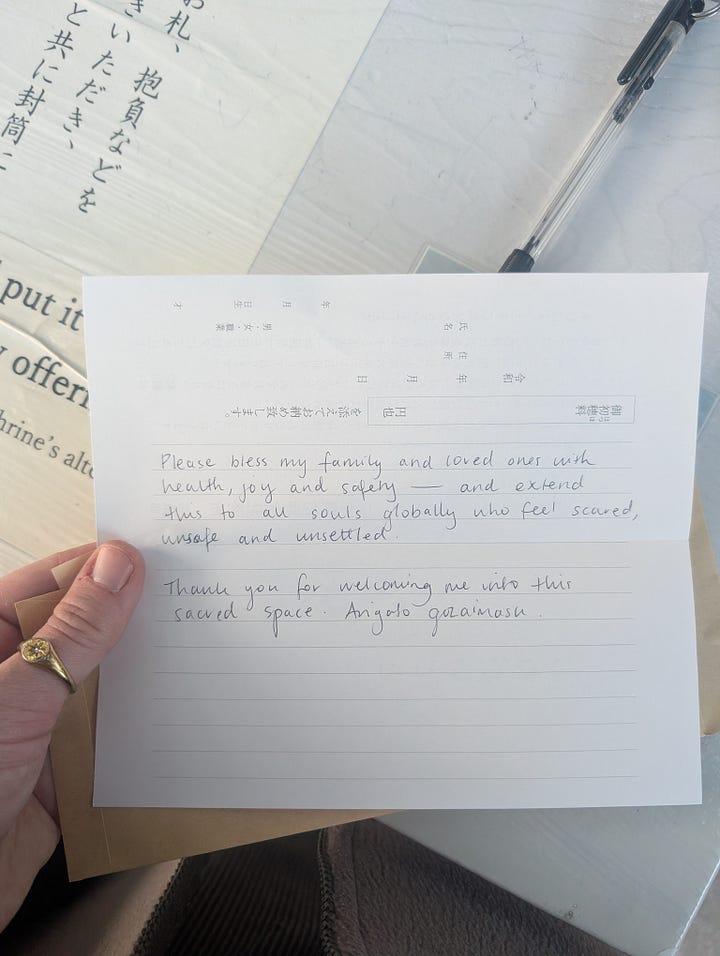 お札、
きいただき、抱負などを
と共に封筒に
put it
offeri
hrine's alt
年 月 日生 才
男・女・職業
氏名
住所
令和 年 月 日
御初穂料 円也
を添えてお納め致します。
Please bless my family and loved ones with
health, joy and safety — and extend
this to all souls globally who feel scared,
unsafe and unsettled.
Thank you for welcoming me into this
sacred space. Arigato gozaimasu.